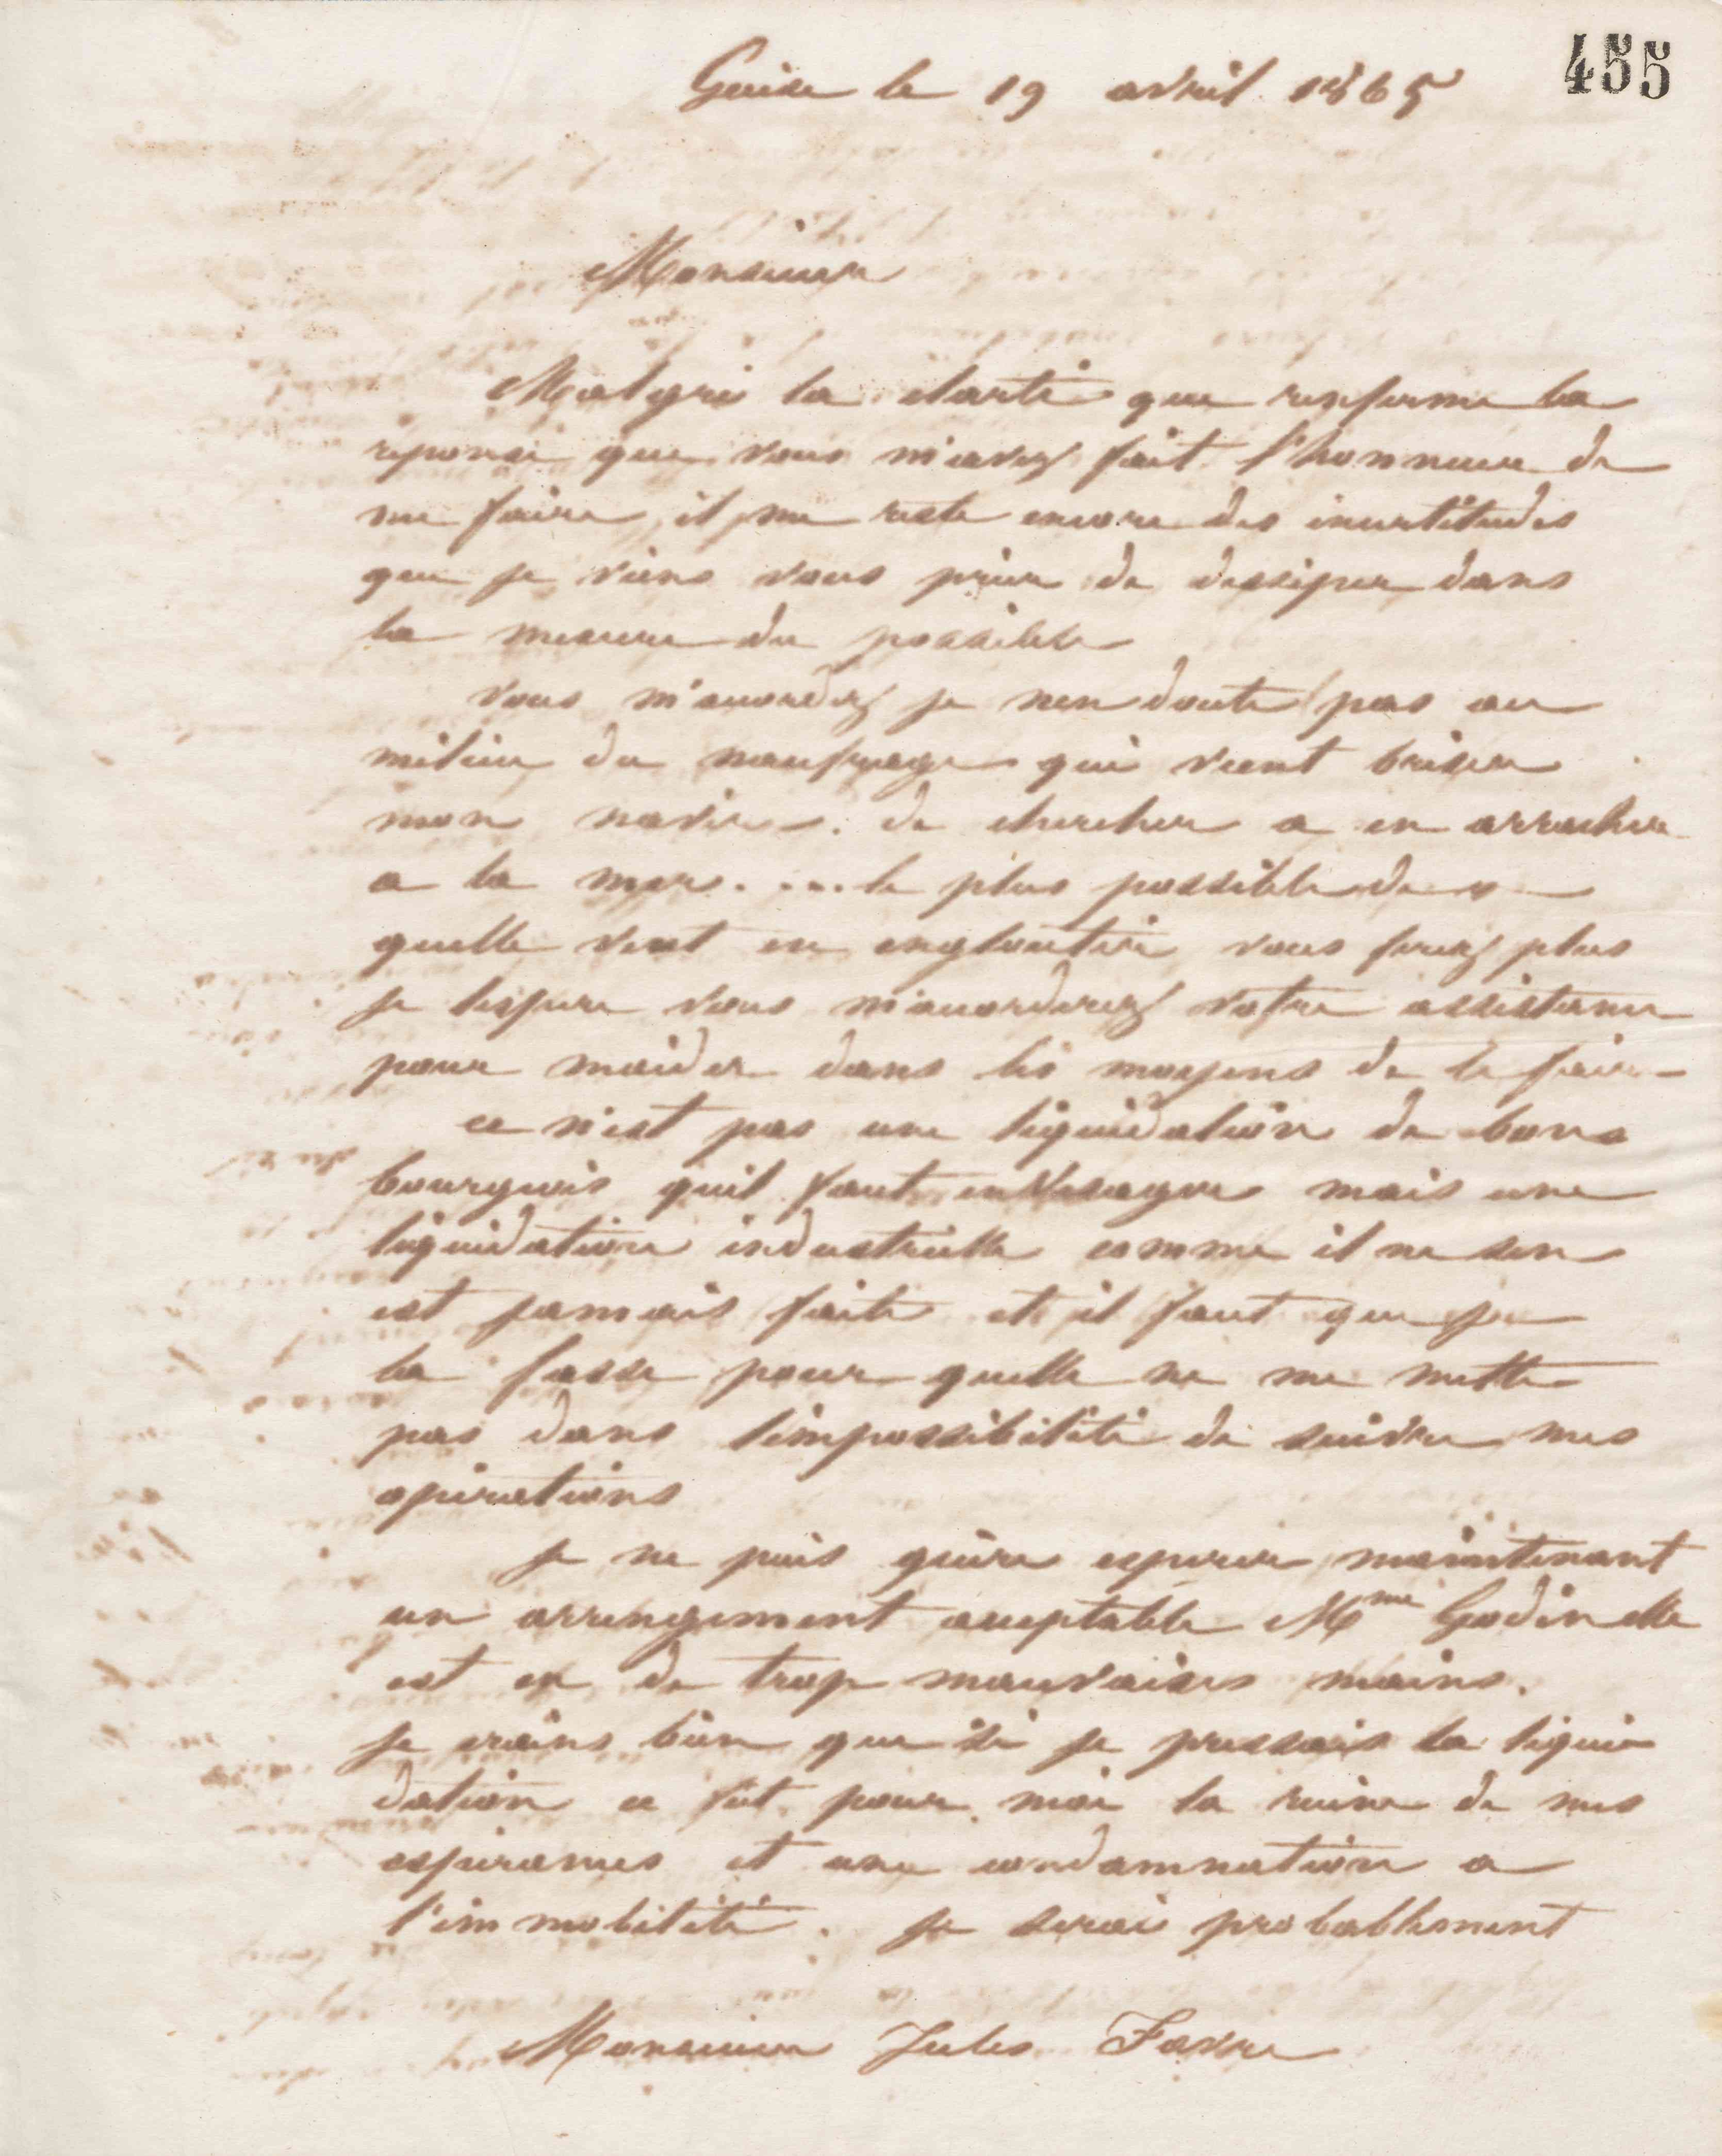 455
Guise le 19 avril 1865
Monsieur
Malgré la clarté que renferme la
réponse que vous m'avez fait l'honneur de
me faire, il me reste encore des incertitudes
que je viens vous prier de dissiper dans
la mesure du possible
vous m'accordez je nen doute pas au
milieu du naufrage qui vient briser
mon navire. de chercher a en arracher
a la mer. .... le plus possible de ce
quelle veut en engloutir vous ferez plus
je lespere vous m'accorderez votre assistance
pour maider dans les moyens de le faire
ce n'est pas une liquidation de bons
bourgeois quil faut envisager mais une
liquidation industrielle comme il ne sen
est jamais faite et il faut que je
la fasse pour quelle ne me mette
pas dans limpossibilité de suivre mes
opérations
je ne puis guère esperer maintenant
un arrengement acceptable Mme Godin elle
est en de trop mauvaises mains.
je crains bien que si je pressais la liqui
dation ce fut pour moi la ruine de mes
espérances et une condamnation a
l'immobilité. je serai probablement
Monsieur Jules Favre